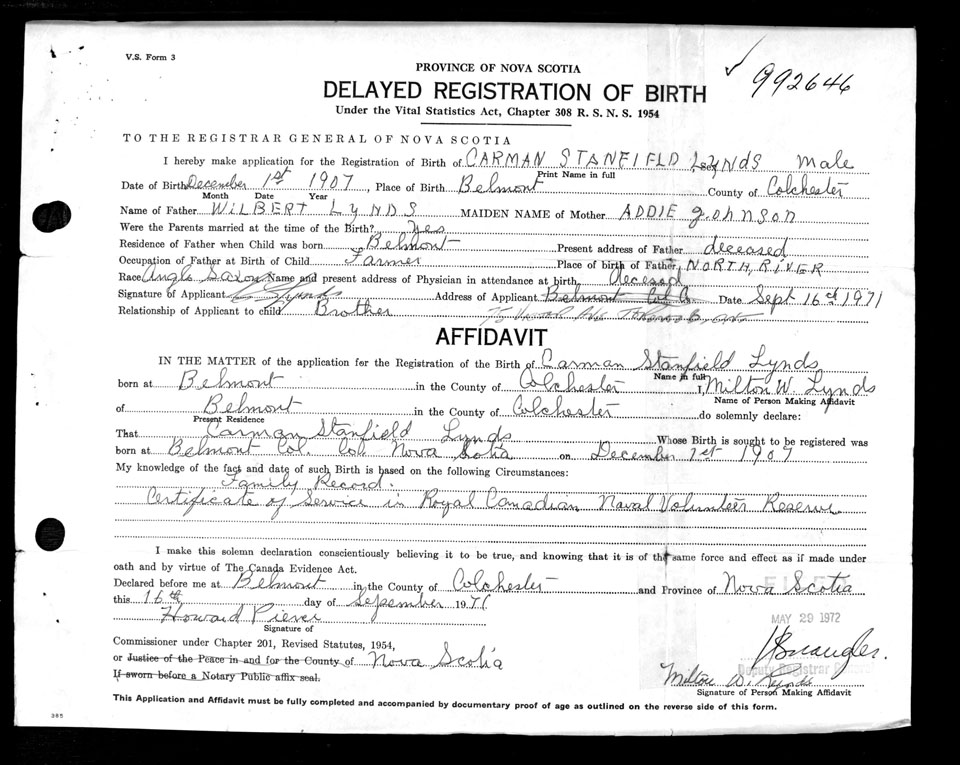 V.S. Form 3
992646
PROVINCE OF NOVA SCOTIA
DELAYED REGISTRATION OF BIRTH
Under the Vital Statistics Act, Chapter 308 R. S. N. S. 1954
TO THE REGISTRAR GENERAL OF NOVA SCOTIA
I hereby make application for the Registration of Birth of CARMAN STANFIELD LYNDS, sex Male
Print Name in full
Date of Birth December 1st 1907, Place of Birth Belmont County of Colchester
Month Date Year
Name of Father WILBERT LYNDS MAIDEN NAME of Mother ADDIE Johnson
Were the Parents married at the time of the Birth? Yes
Residence of Father when Child was born Belmont Present address of Father deceased
Occupation of Father at Birth of Child Farmer Place of birth of Father NORTH, RIVER
Race Anglo Saxon Name and present address of Physician in attendance at birth decesed
Signature of Applicant Lynds Address of Applicant Belmont Col Co Date Sept 16th 1971
Relationship of Applicant to child Brother
AFFIDAVIT
IN THE MATTER of the application for the Registration of the Birth of Carman Stanfield Lynds
Name in full
born at Belmont in the County of Colchester I, Milton W. Lynds
Name of Person Making Affidavit
of Belmont in the County of Colchester do solemnly declare:
Present Residence
That Carman Stanfield Lynds Whose Birth is sought to be registered was
born at Belmont Col. Co. Nova Scotia on December 1st 1907
My knowledge of the fact and date of such Birth is based on the following Circumstances:
Family Record.
Certificate of Service in Royal Canadian Naval Volunteer Reserve
I make this solemn declaration conscientiously believing it to be true, and knowing that it is of the same force and effect as if made under
oath and by virtue of The Canada Evidence Act.
Declared before me at Belmont in the County of Colchester and Province of Nova Scotia
FILED
this 16th day of September 1971
MAY 29 1972
Howard Pierce
Signature of
Commissioner under Chapter 201, Revised Statutes, 1954,
or Justice of the Peace in and for the County of Nova Scotia
Deputy Registrar
If sworn before a Notary Public affix seal.
Milton W. Lynds
Signature of Person Making Affidavit
This Application and Affidavit must be fully completed and accompanied by documentary proof of age as outlined on the reverse side of this form.
385